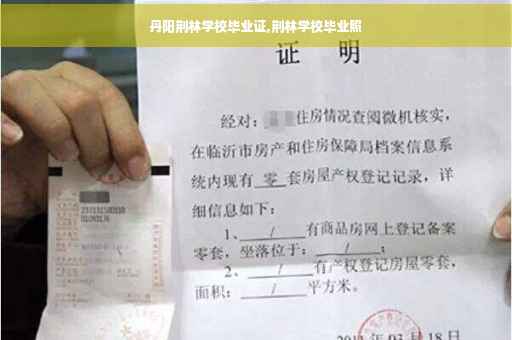 丹阳荆林学校毕业证,荆林学校毕业照
证 明
经对: 住房情况查阅微机核实,
在临沂市房产和住房保障局档案信息系
统内现有 零 套房屋产权登记记录,详
细信息如下:
1、 / 有商品房网上登记备案
零套,坐落位于: / ;
2、 / 有产权登记房屋零套,
面积: / 平方米。
03 月 18 日